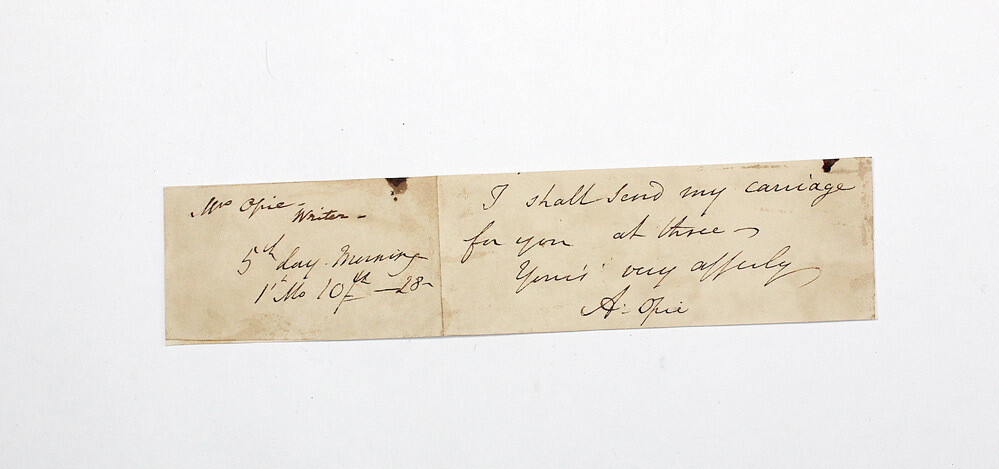 Mrs Opie -
Writer -
5th day Morning
1st Mo 10th - 28 -
I shall send my carriage
for you at three -
Your's very affecly
A. Opie